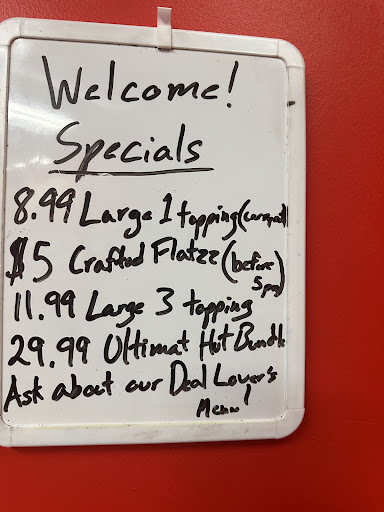 Welcome!
Specials
8.99 Large 1 topping (carryout)
$5 Crafted Flatzz (before 5pm)
11.99 Large 3 topping
29.99 Ultimat Hut Bundle
Ask about our Deal Lover's
Menu!